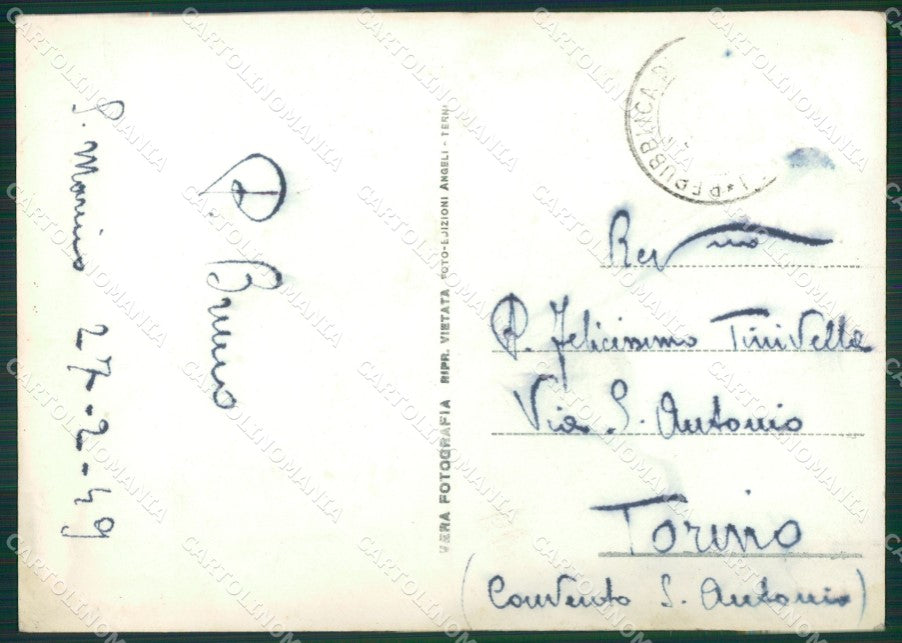 S. Marino 27-2-49
P. Bruno
VERA FOTOGRAFIA RIPR. VIETATA FOTO-EDIZIONI ANGELI - TERNI
REPUBBLICA DI
Rev mo
P. Felicissimo Tinivella
Via S. Antonio
Torino
(Convento S. Antonio)
CARTOLINOMANIA